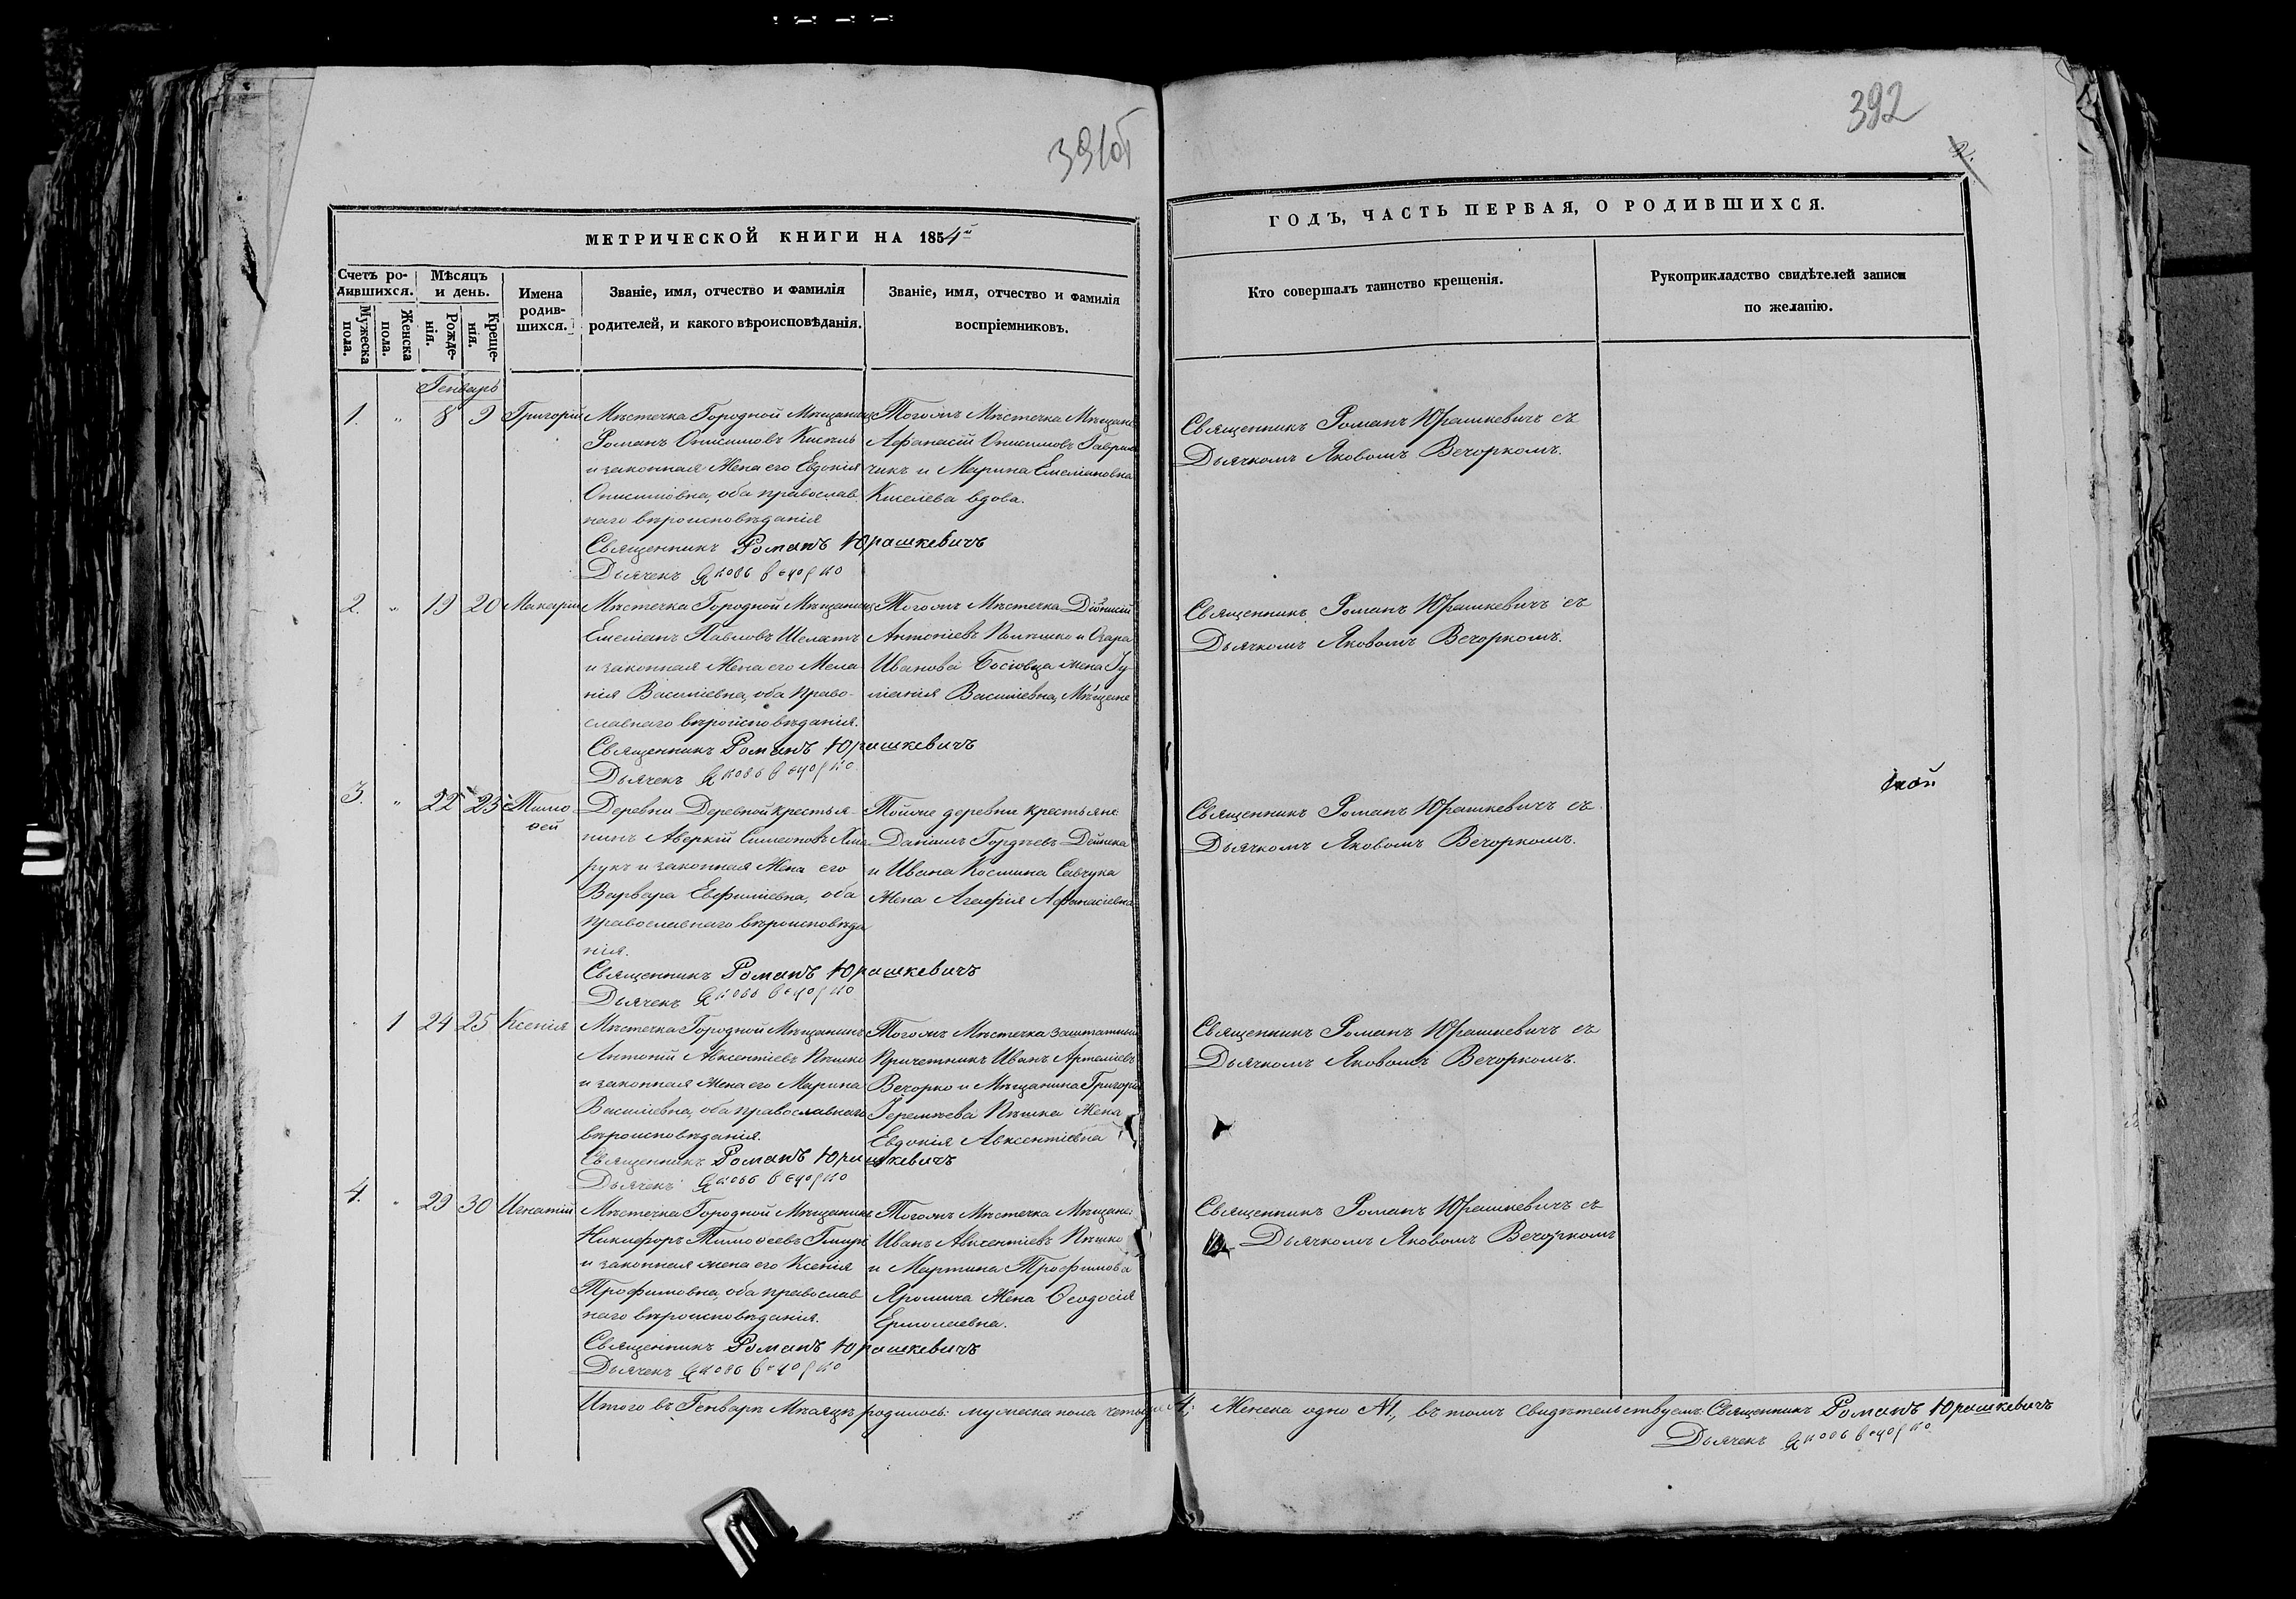 391об
392
2.
МЕТРИЧЕСКОЙ КНИГИ НА 1854й
ГОДЪ, ЧАСТЬ ПЕРВАЯ, О РОДИВШИХСЯ.
Счетъ ро-
дившихся.
Мужеска
пола.
Женска
пола.
Мѣсяцъ
и день.
Рожде-
нія.
Креще-
нія.
Имена
родив-
шихся.
Званіе, имя, отчество и фамилія
родителей, и какого вѣроисповѣданія.
Званіе, имя, отчество и фамилія
воспріемниковъ.
Кто совершалъ таинство крещенія.
Рукоприкладство свидѣтелей записи
по желанію.
Генварь
1. " 8 9 Григорій
Мѣстечка Городной Мѣщанинъ
Романъ Онисимовъ
и законная Жена его Евдокія
Онисимовна, оба православ
наго вѣроисповѣданія
Священникъ Романъ Юрашкевичъ
Дьячекъ Яковъ Вечорко
Тогожъ Мѣстечка Мѣщане
Афанасій Онисимовъ Гаврил
чикъ и Марина Емеліановна
Киселева вдова.
Священникъ Романъ Юрашкевичъ съ
Дьячкомъ Яковомъ Вечоркомъ.
2. " 19 20 Макарій
Мѣстечка Городной Мѣщанинъ
Емеліанъ Павловъ Шеламъ
и законная Жена его Мела
нія Василіевна, оба право-
славнаго вѣроисповѣданія.
Священникъ Романъ Юрашкевичъ
Дьячекъ Яковъ Вечорко
Тогожъ Мѣстечка Діѡнисій
Антоніевъ Полюшко и
Иванова жена Іу
ліанія Василіевна, Мѣщане
Священникъ Романъ Юрашкевичъ съ
Дьячкомъ Яковомъ Вечоркомъ.
3. " 22 23 Тимо
ѳей
Деревни Деревной крестья-
нинъ Аверкій Симеоновъ
рукъ и законная Жена его
Варвара Евфиміевна, оба
православнаго вѣроисповѣда
нія.
Священникъ Романъ Юрашкевичъ
Дьячекъ Яковъ Вечорко
Тойже деревни крестьяне
Даніилъ Гордѣевъ Дейнека
и Ивана Космина Савчука
Жена Агафія Афанасіевна
Священникъ Романъ Юрашкевичъ съ
Дьячкомъ Яковомъ Вечоркомъ.
1 24 25 Ксенія
Мѣстечка Городной Мѣщанинъ
Антоній Авксентіевъ Пѣшко
и законная жена его Марина
Василіевна, оба православнаго
вѣроисповѣданія.
Священникъ Романъ Юрашкевичъ
Дьячекъ Яковъ Вечорко
Тогожъ Мѣстечка заштатный
Причетникъ Иванъ Артеміевъ
Вечорко и Мѣщанина Григорія
Іереміева Пѣшка Жена
Евдокія Авксентіевна
Священникъ Романъ Юрашкевичъ съ
Дьячкомъ Яковомъ Вечоркомъ.
4. " 29 30 Игнатій
Мѣстечка Городной Мѣщанинъ
Никифоръ Тимоѳеевъ
и законная жена его Ксенія
Трофимовна, оба православ
наго вѣроисповѣданія.
Священникъ Романъ Юрашкевичъ
Дьячекъ Яковъ Вечорко
Тогожъ Мѣстечка Мѣщане:
Иванъ Авксентіевъ Пѣшко
и Мартина Трофимова
Яромича Жена Ѳеодосія
Ермолаевна.
Священникъ Романъ Юрашкевичъ съ
Дьячкомъ Яковомъ Вечоркомъ
Итого въ Генварѣ Мѣсяцѣ родилось: мужеска пола четыре 4; Женска одно №1., въ томъ свидѣтельствуемъ: Священникъ Романъ Юрашкевичъ
Дьячекъ Яковъ Вечорко